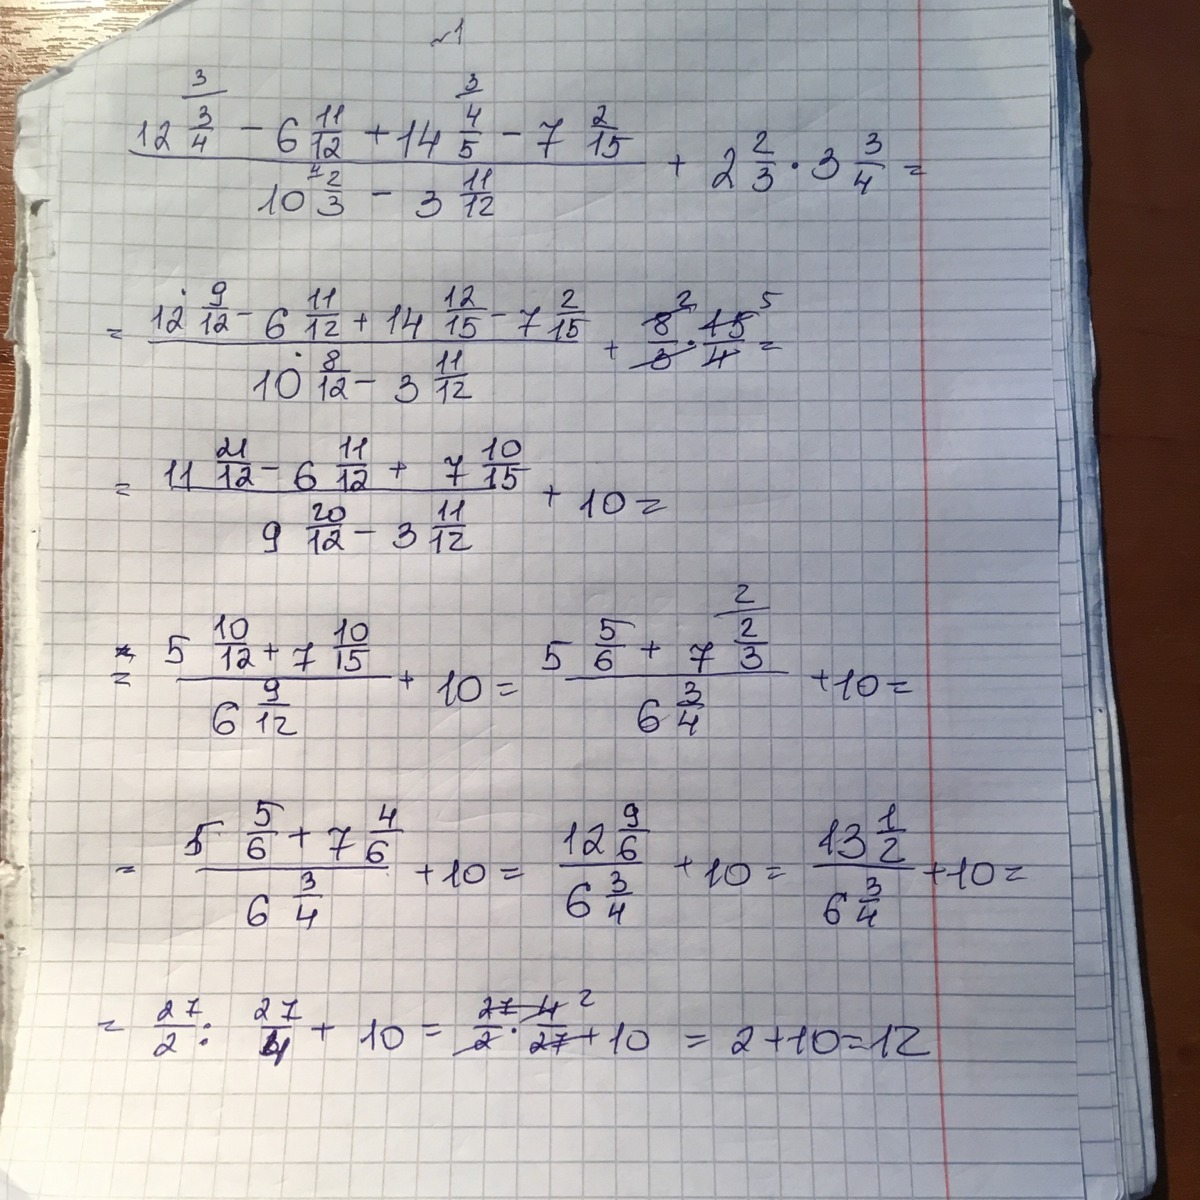 ~1
(12 3/4 - 6 11/12 + 14 4/5 - 7 2/15) / (10 2/3 - 3 11/12) + 2 2/3 · 3 3/4 =
= (12 9/12 - 6 11/12 + 14 12/15 - 7 2/15) / (10 8/12 - 3 11/12) + 8/3 · 15/4 =
= (11 21/12 - 6 11/12 + 7 10/15) / (9 20/12 - 3 11/12) + 10 =
= (5 10/12 + 7 10/15) / (6 9/12) + 10 = (5 5/6 + 7 2/3) / (6 3/4) + 10 =
= (5 5/6 + 7 4/6) / (6 3/4) + 10 = (12 9/6) / (6 3/4) + 10 = (13 1/2) / (6 3/4) + 10 =
= 27/2 : 27/4 + 10 = 27/2 · 4/27 + 10 = 2 + 10 = 12